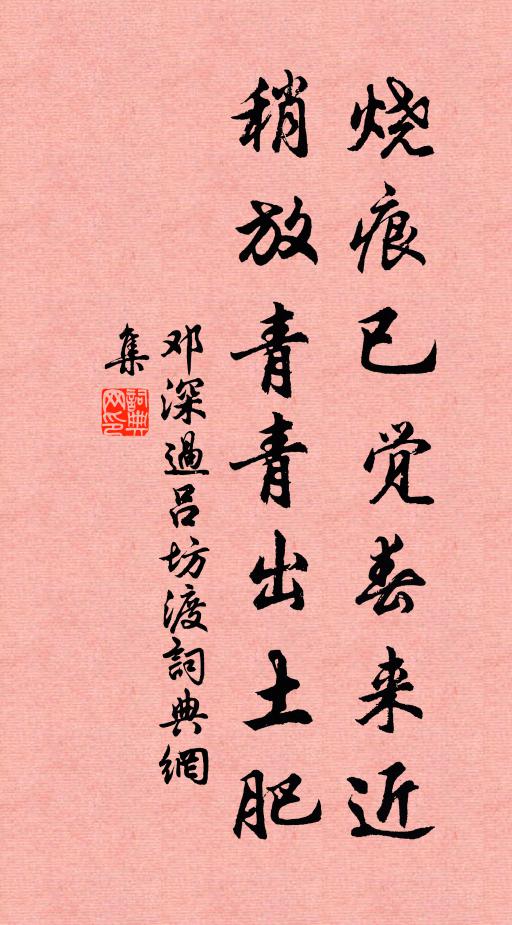 烧痕已觉春来近
稍放青青出土肥
邓深過吕坊渡詞典網
集
詞典網印